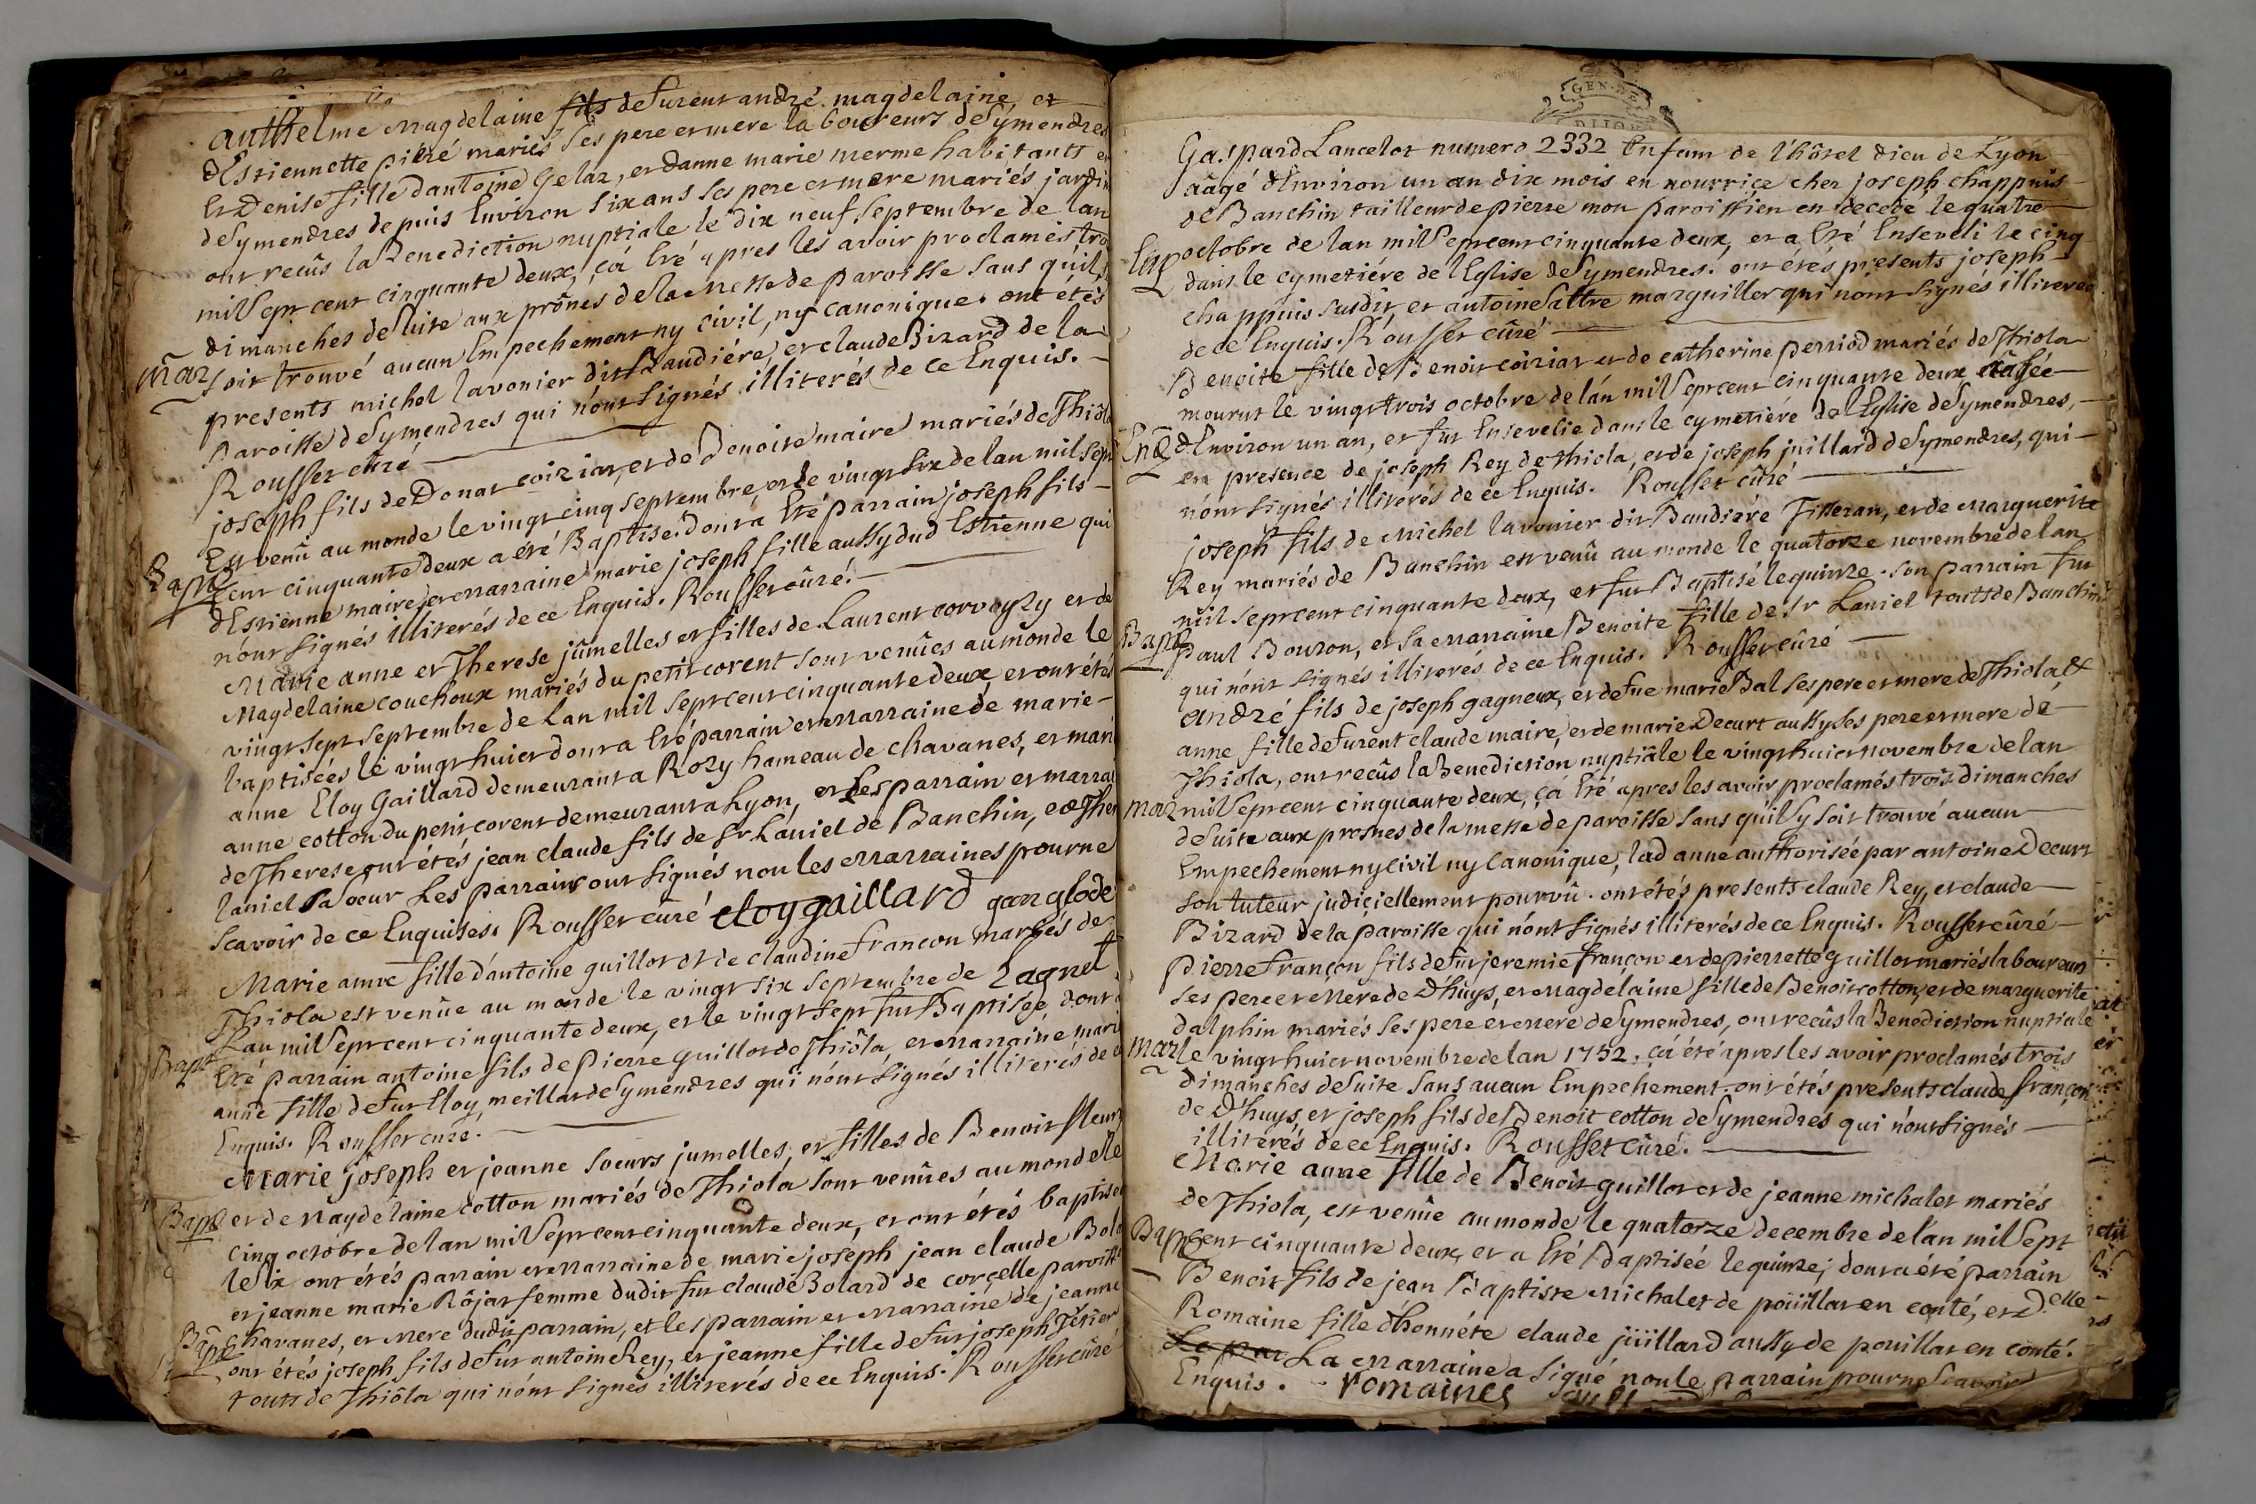 anthelme Magdelaine fils defurent andré magdelaine, et
dEstiennette piézé mariés ses pere et mere laboureurs deSymendres
Et Denise fille dantoine Gelaz, et danne marie merme habitants
deSymendres depuis Environ six ans ses pere et mere mariés
ont recûs la Benediction nuptiale le dix neuf Septembre de lan
mil Sept cent cinquante deux, ça Eté apres les avoir proclamés trois
dimanches deSuite aux prônes de la Messe de paroisse sans quil
mar soit trouvé aucun Empechement ny civil, ny canonique. ont etés
presents michel lavonier dit Baudiére, et claude Bizard de la
paroisse deSymendres qui n'ont signés illiterés de ce Enquis.
Rousset curé
joseph fils de Donat coiziat, et de Benoite maire mariés de Thiola
Est venû au monde le vingt cinq septembre, et le vingt six de lan mil Sept
Bapt cent cinquante deux a eté Baptisé. dont a Eté parrain joseph fils
dEstienne maire, et marraine marie joseph fille aussy dud Estienne qui
n'ont signés illiterés de ce Enquis. Rousset cûré.
Marie anne et Therese jûmelles et filles de Laurent corveyzy et de
Magdelaine couchoux mariés du petit corent sont venûes au monde le
vingt sept septembre de Lan mil sept cent cinquante deux et ont étés
baptisées le vingt huict dont a Eté parrain et marraine de marie
anne Eloy Gaillard demeurant a Rozy hameau de chavanes, et marie
anne cotton du petit corent demeurant a Lyon, et Les parrain et marraine
de Therese ont étés jean claude fils de Sr Laniel de Banchin, et
laniel Sa soeur Les parrains ont signés non les marraines pour ne
scavoir de ce Enquises. Rousset cûré eloy gaillard
Marie anne fille d'antoine guillot et de claudine françon mariés de
Thiola est venûe au monde le vingt six septembre de
Lan mil Sept cent cinquante deux, et le vingt sept fut Baptisée, dont a
Bapt Eté parrain antoine fils de Pierre guillot de Thiôla, et marraine marie
anne fille de fut Eloy meillat deSymendres qui n'ont signés illiterés de ce
Enquis. Rousset curé.
Marie joseph et jeanne soeurs jumelles, et filles de Benoit fleury
Bapt et de Magdelaine cotton mariés de Thiola sont venûes au monde le
cinq octobre de lan mil Sept cent cinquante deux, et ont étés baptisées
le ix ont étés parrain et marraine de marie joseph jean claude Bolard
et jeanne marie Rôjat femme dudit fut claude Bolard de corcelle paroisse
Bapt chavanes, et mere dudit parrain, et les parrain et marraine de jeanne
ont étés joseph fils de fut antoine Rey, et jeanne fille de fut joseph
touts de Thiôla qui n'ont signés illiterés de ce Enquis. Rousset cûré
GEN. DE
DIJON
Gaspard Lancelot numero 2332 Enfant de l'hôtel dieu de Lyon
aâgé dEnviron un an dix mois en nourrice chez joseph chappuis
de Banchin tailleur de pierre mon paroissien en decedé le quatre
octobre de lan mil Sept cent cinquante deux, et a Eté Enseveli le cinq
dans le cymetiére de lEglise deSymendres. ont étés presents joseph
chappuis susdit, et antoine Sattre marguiller qui n'ont signés illiterés
de ce Enquis. Rousset cûré
Benoite fille de Benoit coiziat et de catherine perriod mariés de Thiola
mourut le vingt trois octobre de lán mil Sept cent cinquante deux
dEnviron un an, et fut Ensevelie dans le cymetiére de lEglise deSymendres,
en presence de joseph Rey de thiola, et de joseph juillard deSymendres, qui
n'ont signés illiterés de ce Enquis. Rousset cûré
joseph fils de Michel lavonier dit Baudiére Tisseran, et de marguerite
Rey mariés de Banchin est venû au monde le quatorze novembre de lan
mil sept cent cinquante deux, et fut Baptisé le quinze. son parrain fut
Bapt paul Bouzon, et sa marraine Benoite fille de Sr Laniel touts de Banchin
qui n'ont signés illiterés de ce Enquis. Rousset cûré
andré fils de joseph gagneux, et de fue marie Bal ses pere et mere de Thiola, &
anne fille defurent claude maire, et de marie Decurt aussy ses pere et mere de
Thiola, ont recûs la Benediction nuptiale le vingt huict novembre de lan
mar mil Sept cent cinquante deux, çà Eté apres les avoir proclamés trois dimanches
deSuite aux prosnes de la messe de paroisse sans quil y soit trouvé aucun
Empechement ny civil ny canonique, lad anne authorisée par antoine Decurt
son tuteur judiciellement pourvû. ont étés presents claude Rey, et claude
Bizard de la paroisse qui n'ont signés illiterés de ce Enquis. Rousset cûré
pierre françon fils de fut jeremie françon et de pierrette guillot mariés laboureurs
ses pere et mere de Dhuys, et Magdelaine fille de Benoit cotton, et de marguerite
dalphin mariés ses pere et mere deSymendres, ont recûs la Benediction nuptiale
mar le vingt huict novembre de lan 1752. çà été apres les avoir proclamés trois
dimanches deSuite sans aucun Empechement. ont étés presents claude françon
de D'huys, et joseph fils de Benoit cotton deSymendres qui n'ont signés
illiterés de ce Enquis. Rousset cûré.
Marie anne fille de Benoit guillot et de jeanne michalet mariés
de Thiola, est venûe au monde le quatorze decembre de lán mil Sept
Bapt cent cinquante deux, et a Eté Baptisée le quinze; dont a été parrain
Benoit fils de jean Baptiste Michalet de poüillat en conté, et D.elle
Romaine fille dhonnéte claude jüillard aussy de poüillat en conté.
Le par La marraine a signé non le parrain pour ne scavoir
Enquis. romaines